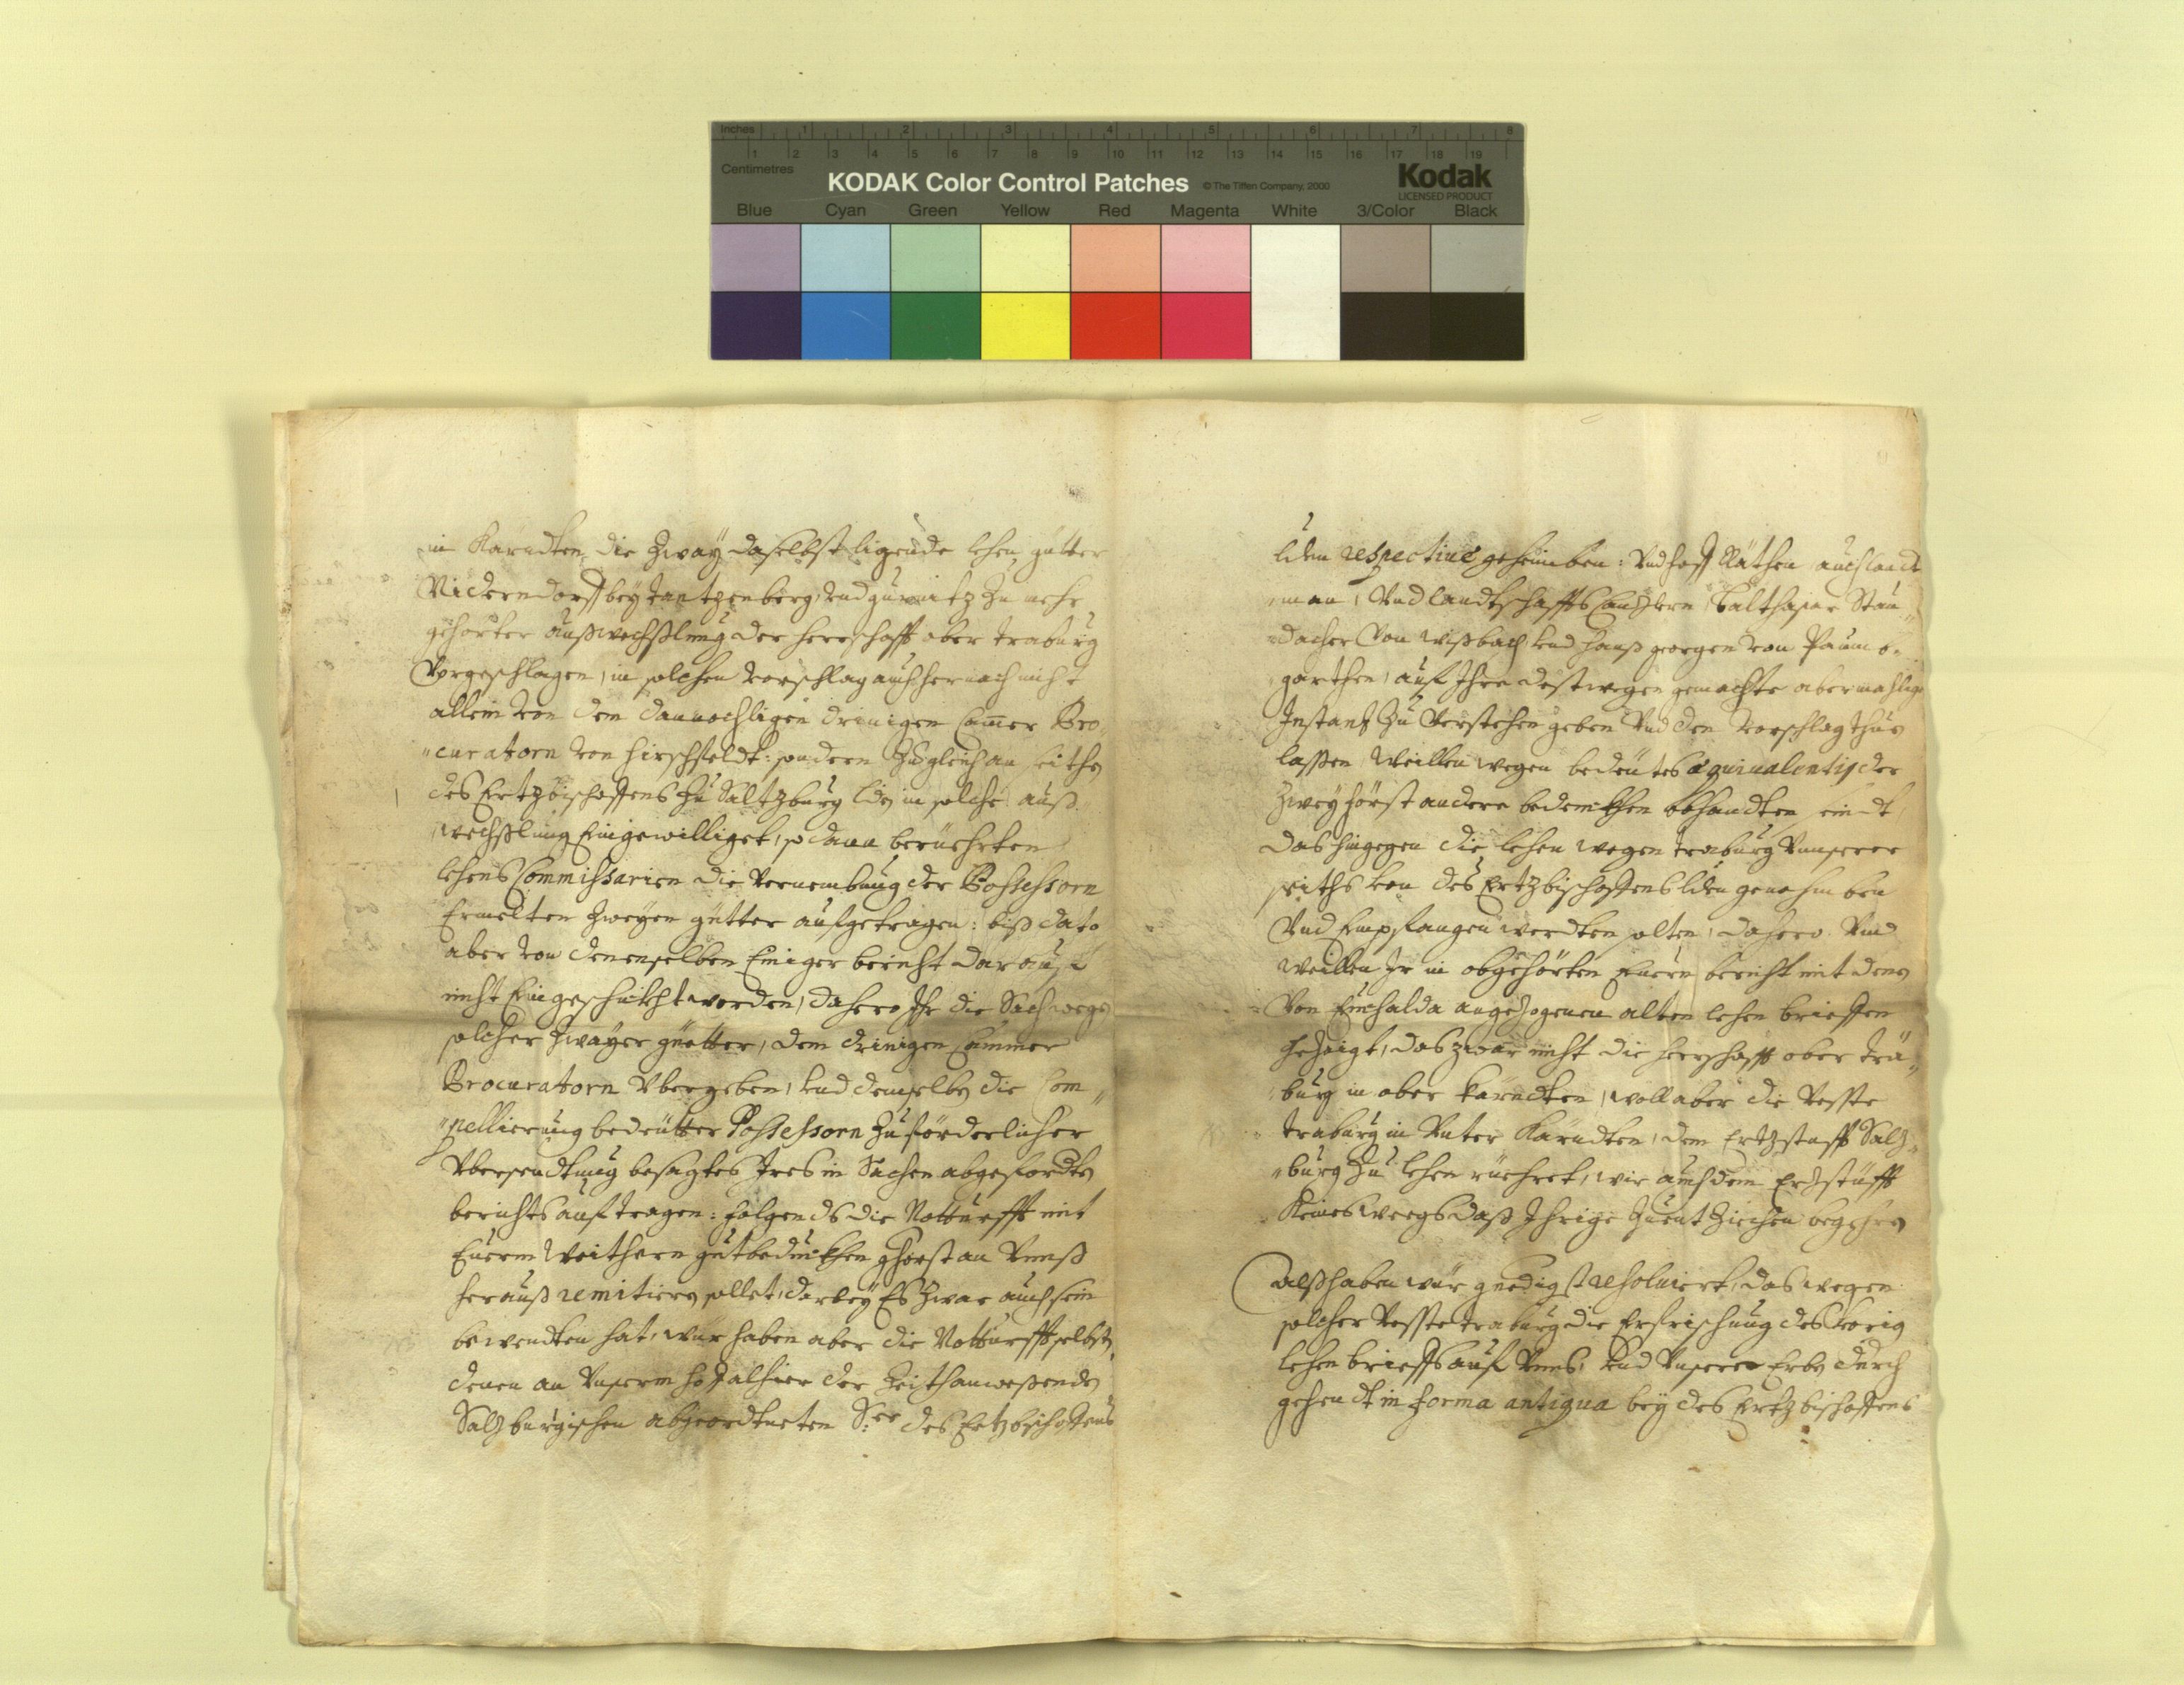 Inches 1 2 3 4 5 6 7 8
1 2 3 4 5 6 7 8 9 10 11 12 13 14 15 16 17 18 19
Centimetres
KODAK Color Control Patches © The Tiffen Company, 2000 Kodak
LICENSED PRODUCT
Blue Cyan Green Yellow Red Magenta White 3/Color Black
in Kärndten, die zway daselbst ligende lehen gütter
Niderndorff bey Tantzenberg, vnd Gurnitz zu mehr
gehörter außwechßlung der herrschafft ober Traburg
Vorgeschlagen, in solchen vorschlag auch hernach nicht
allein von dem dannochligen Camer Pro
curatorn von Hirschfeldt: sondern zugleich an seithen
des Ertzbischoffens zu Saltzburg Lden in solche auß
wechßlung Eingewilliget, sodann berüehrten
lehens Commissarien die Vernembung der Possessorn
Ermelten zweyen gütter aufgetragen: biß dato
aber von denenselben Einiger bericht darauf
nicht Eingeschickht worden, dahero Ihr die Sach wegen
solcher zwayer güetter, dem Cammer
Procuratorn Vbergeben, vnd demselben die Com
pellierung bedeutter Possessorn zu förderlicher
Vbersendtung besagtes Ires in Sachen abgeforderten
berichts auftragen: folgends die Notturfft mit
Euerm weithern guetbedunckhen ghorst an Vnnß
herauß remitiern sollet, darbey Es zwar auch sein
bewendten hat, wür haben aber die Notturfft selbst,
denen an Vnserm hof alhier der Zeith anweßenden
Saltzburgischen abgeordtneten des Ertzbischoffens
Lden respectiue geheimben: Vnd hoff Räthen auch landt
man, Vnd landtschaffts Canzlern, Balthasar Stau
dacher von Wißbach, vnd Hanß Georgen von Paumb
garthen, auf Ihre destwegen gemachte abermahlige
Instanz zu Verstehen geben Vnd den vorschlag thuen
lassen, Weillen wegen bedeutes æquiualentis der
zwey andere bedenckhen obhandten seindt,
das hingegen die lehen wegen Traburg Vnnserer
seiths von des Ertzbischoffens Lden genohmben
Vnd Empfangen werdten solten, dahero Vnd
weillen Ir in obgehörten Euern bericht mit denen
Von angezogenen alten lehen brieffen
gezaigt, das zwar nicht die herrschafft ober Tra
burg in ober Kärndten, woll aber die Vesste
Traburg in Vnter Kärndten, dem Ertzstufft Salz
burg zu lehen rüehret, wir auch dem Erzstüfft
Keines weegs daß Ihrige zuentziechen begehren
Alß haben wür gnedigst resoluiert, das wegen
solcher Vesste Traburg die Erfrischung des vorigen
lehen brieffs auf Vnns, vnd Vnsere Erben durch
gehendt in forma antiqua bey des Ertzbischoffens